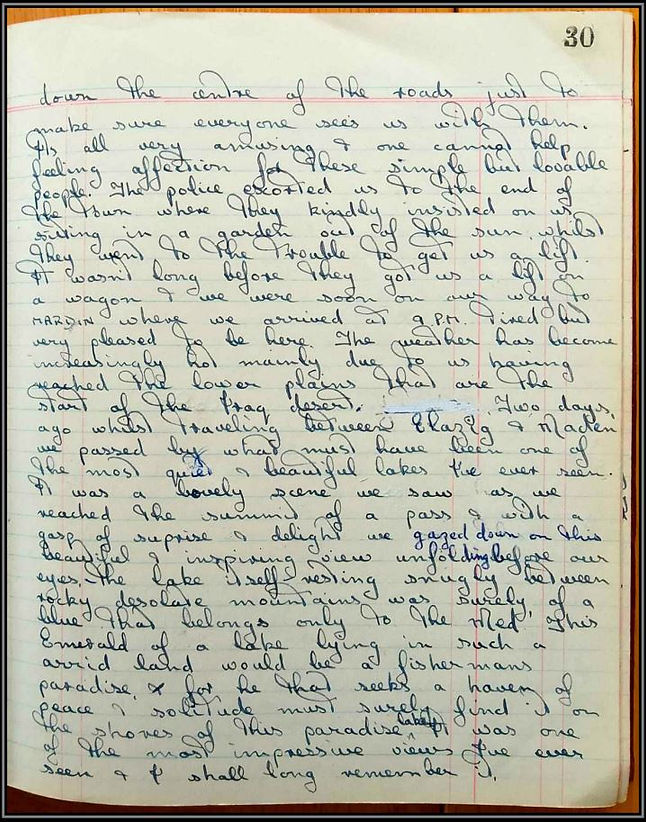 30
down the centre of the roads just to
make sure everyone sees us with them.
Its all very amusing & one cannot help
feeling affection for these simple but lovable
people. The police escorted us to the end of
the town where they kindly insisted on us
sitting in a garden out of the sun whilst
they went to the trouble to get us a lift.
It wasn't long before they got us a lift on
a wagon & we were soon on our way to
MARDIN where we arrived at 9 P.M. Tired but
very pleased to be here. The weather has become
increasingly hot mainly due to us having
reached the lower plains that are the
start of the Iraq desert. Two days,
ago whilst traveling between Elazig & Maden
we passed by what must have been one of
the most quiet & beautiful lakes I've ever seen.
It was a lovely scene we saw as we
reached the summit of a pass & with a
gasp of suprise & delight we gazed down on this
beautiful & inspiring view unfolding before our
eyes. The lake itself resting snugly between
rocky desolate mountains was surely of a
blue that belongs only to the Med. This
Emerald of a lake lying in such a
arrid land would be a fishermans
paradise, & for he that seeks a haven of
peace & solitude must surely find it on
the shores of this paradise lake. It was one
of the most impressive views I've ever
seen & I shall long remember it.